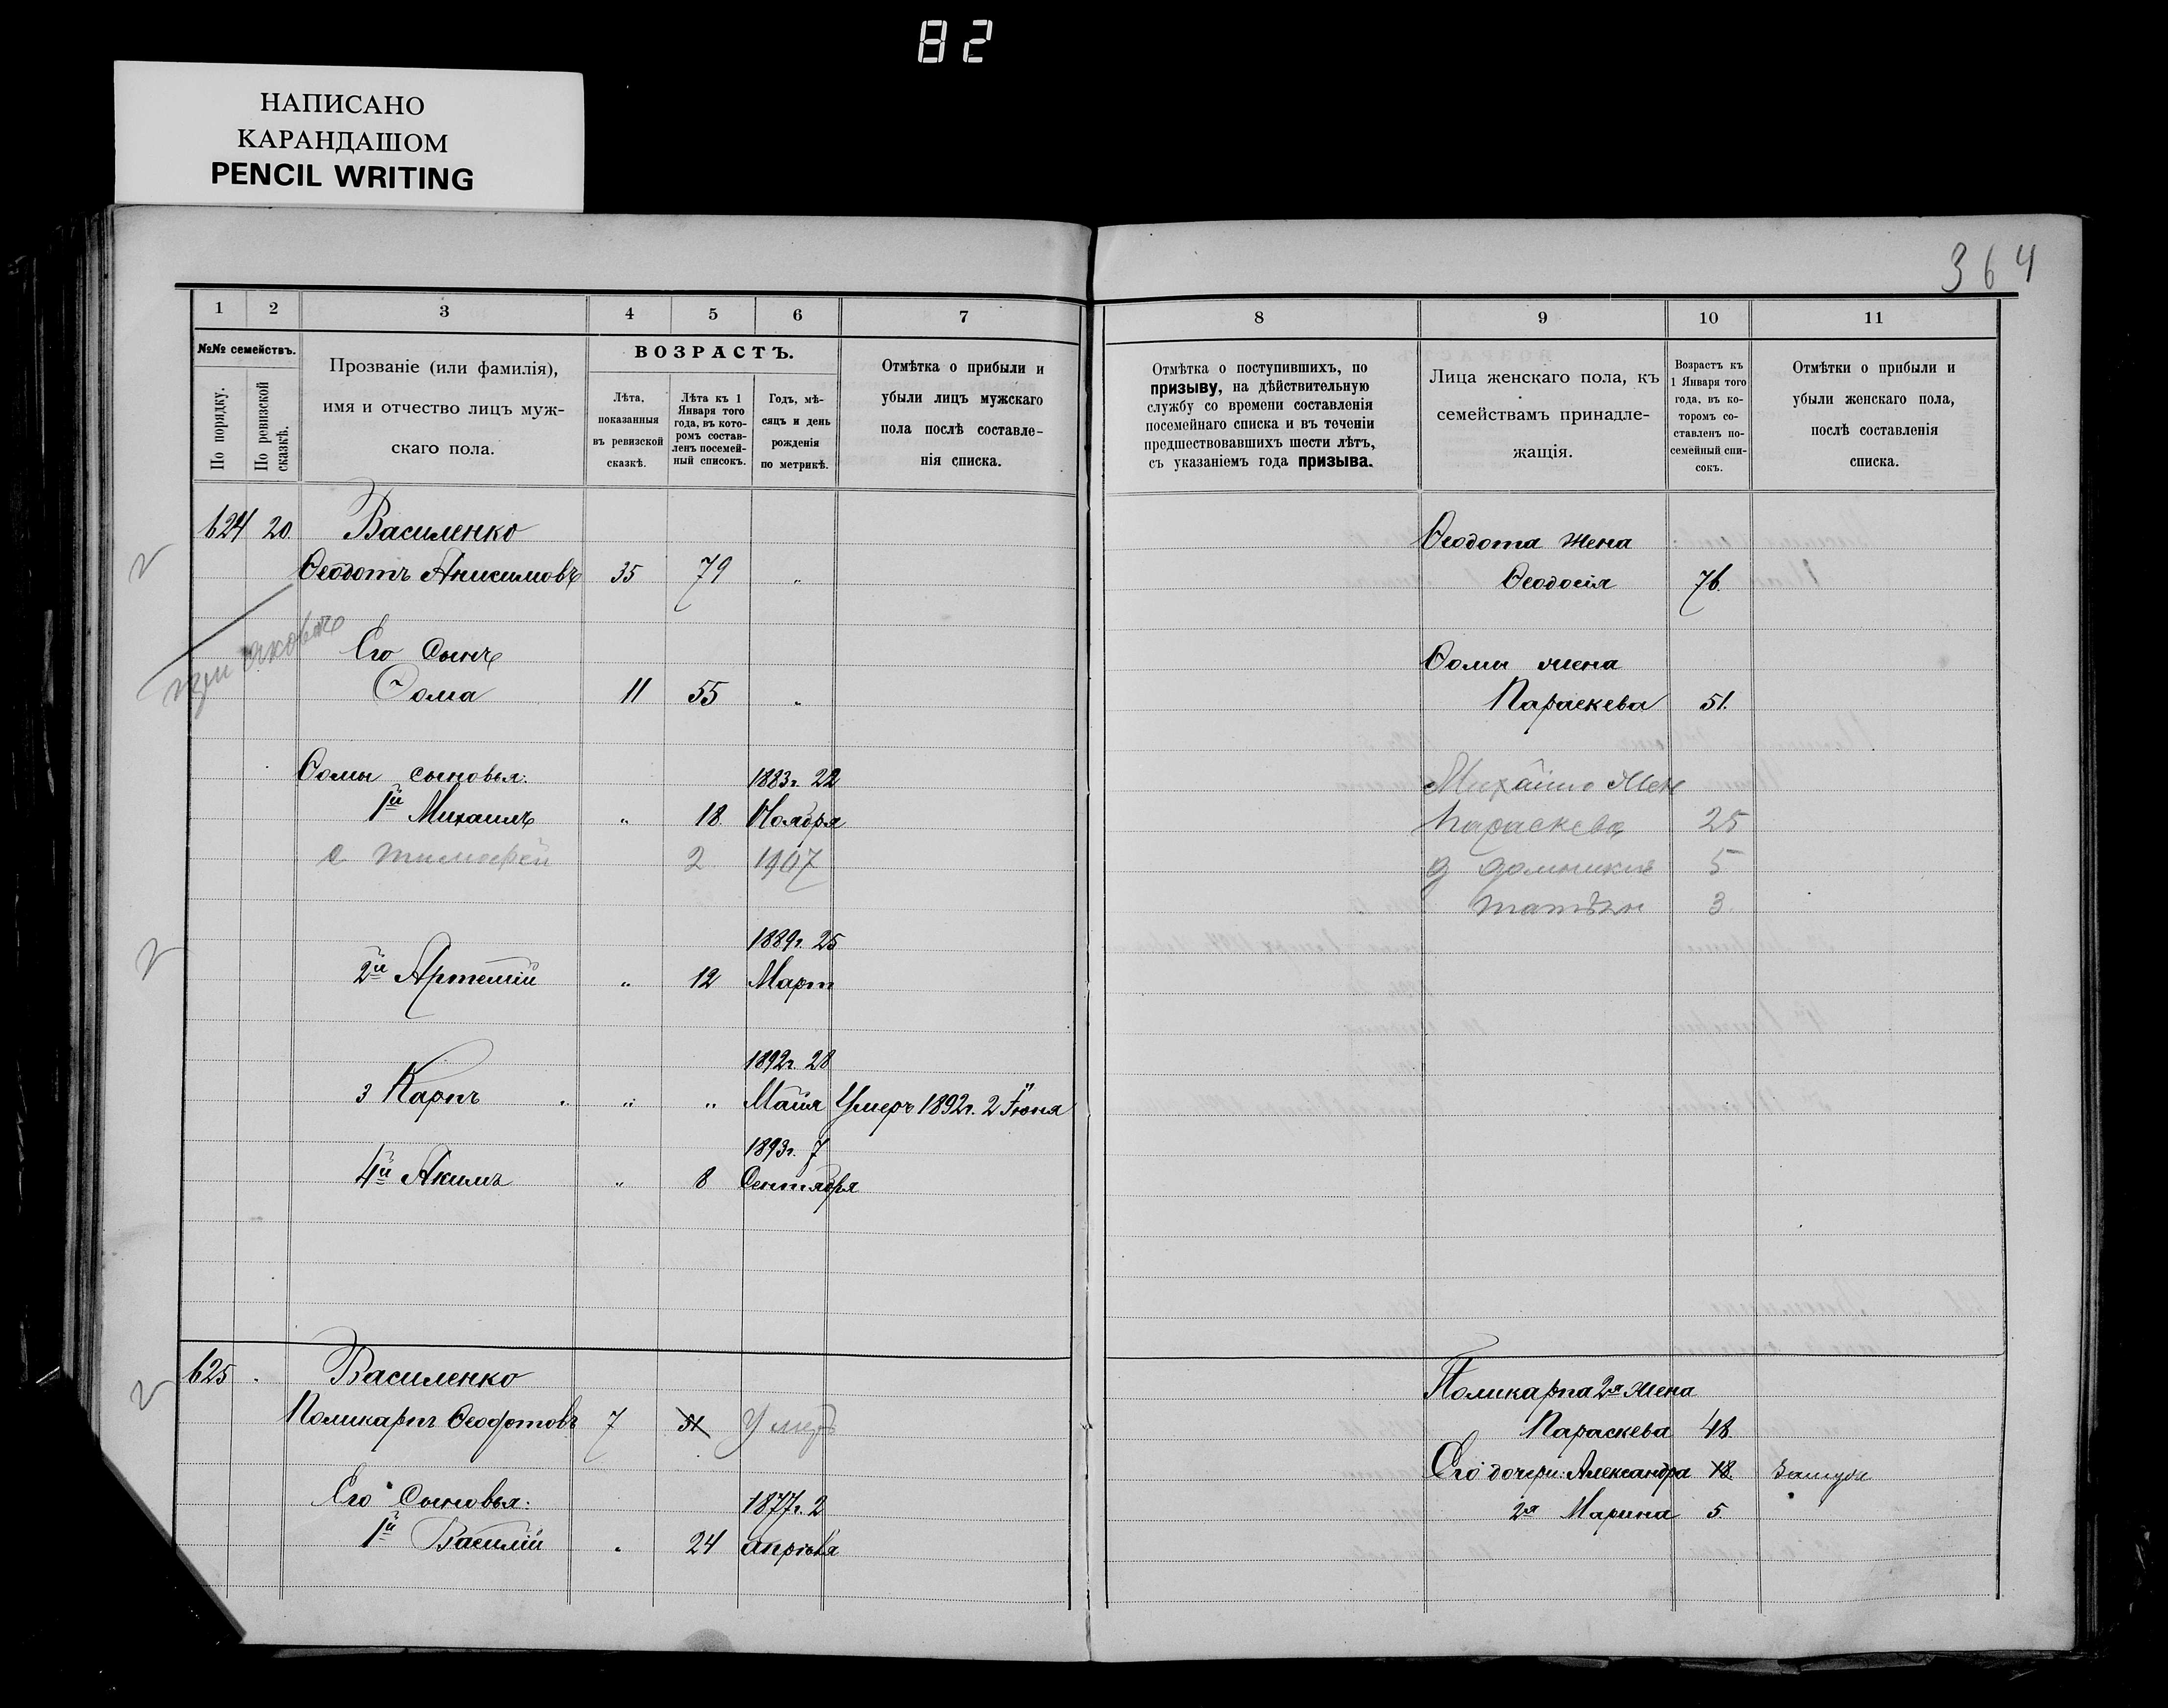 82
НАПИСАНО
КАРАНДАШОМ
PENCIL WRITING
364
1 2 3 4 5 6 7
№№ семействъ.
По порядку.
По ревизской сказкѣ.
Прозваніе (или фамилія),
имя и отчество лицъ муж-
скаго пола.
ВОЗРАСТЪ.
Лѣта,
показанныя
въ ревизской
сказкѣ.
Лѣта къ 1
Января того
года, въ кото-
ромъ состав-
ленъ посемей-
ный списокъ.
Годъ, мѣ-
сяцъ и день
рожденія
по метрикѣ.
Отмѣтка о прибыли и
убыли лицъ мужскаго
пола послѣ составле-
нія списка.
624 20 Василенко
Ѳеодотъ Анисимовъ 35 79 "
Его Сынъ
Ѳома 11 55 "
Ѳомы сыновья: 1883г. 22
1й Михаилъ " 18 Ноября
с Тимофей 2 1907
1889г. 25
2й Артемій " 12 Март
1892г. 28
3 Карпъ " " Маія Умеръ 1892г. 2 Іюня
1893г. 7
4й Акимъ " 8 Сентября
625 Василенко
Поликарпъ Ѳеодотовъ 7 51 Умеръ
Его Сыновья: 1877г. 2
1й Василій " 24 апрѣля
8 9 10 11
Отмѣтка о поступившихъ, по
призыву, на дѣйствительную
службу со времени составленія
посемейнаго списка и въ теченіи
предшествовавшихъ шести лѣтъ,
съ указаніемъ года призыва.
Лица женскаго пола, къ
семействамъ принадле-
жащія.
Возрастъ къ
1 Января того
года, въ ко-
торомъ со-
ставленъ по-
семейный спи-
сокъ.
Отмѣтки о прибыли и
убыли женскаго пола,
послѣ составленія
списка.
Ѳеодота жена
Ѳеодосія 76.
Ѳомы жена
Параскева 51.
Михайло жен
Параскева 25
д Домникія 5
3
Поликарпа 2я жена
Параскева 48
Его дочери: Александра 18. Замуж
2я Марина 5.